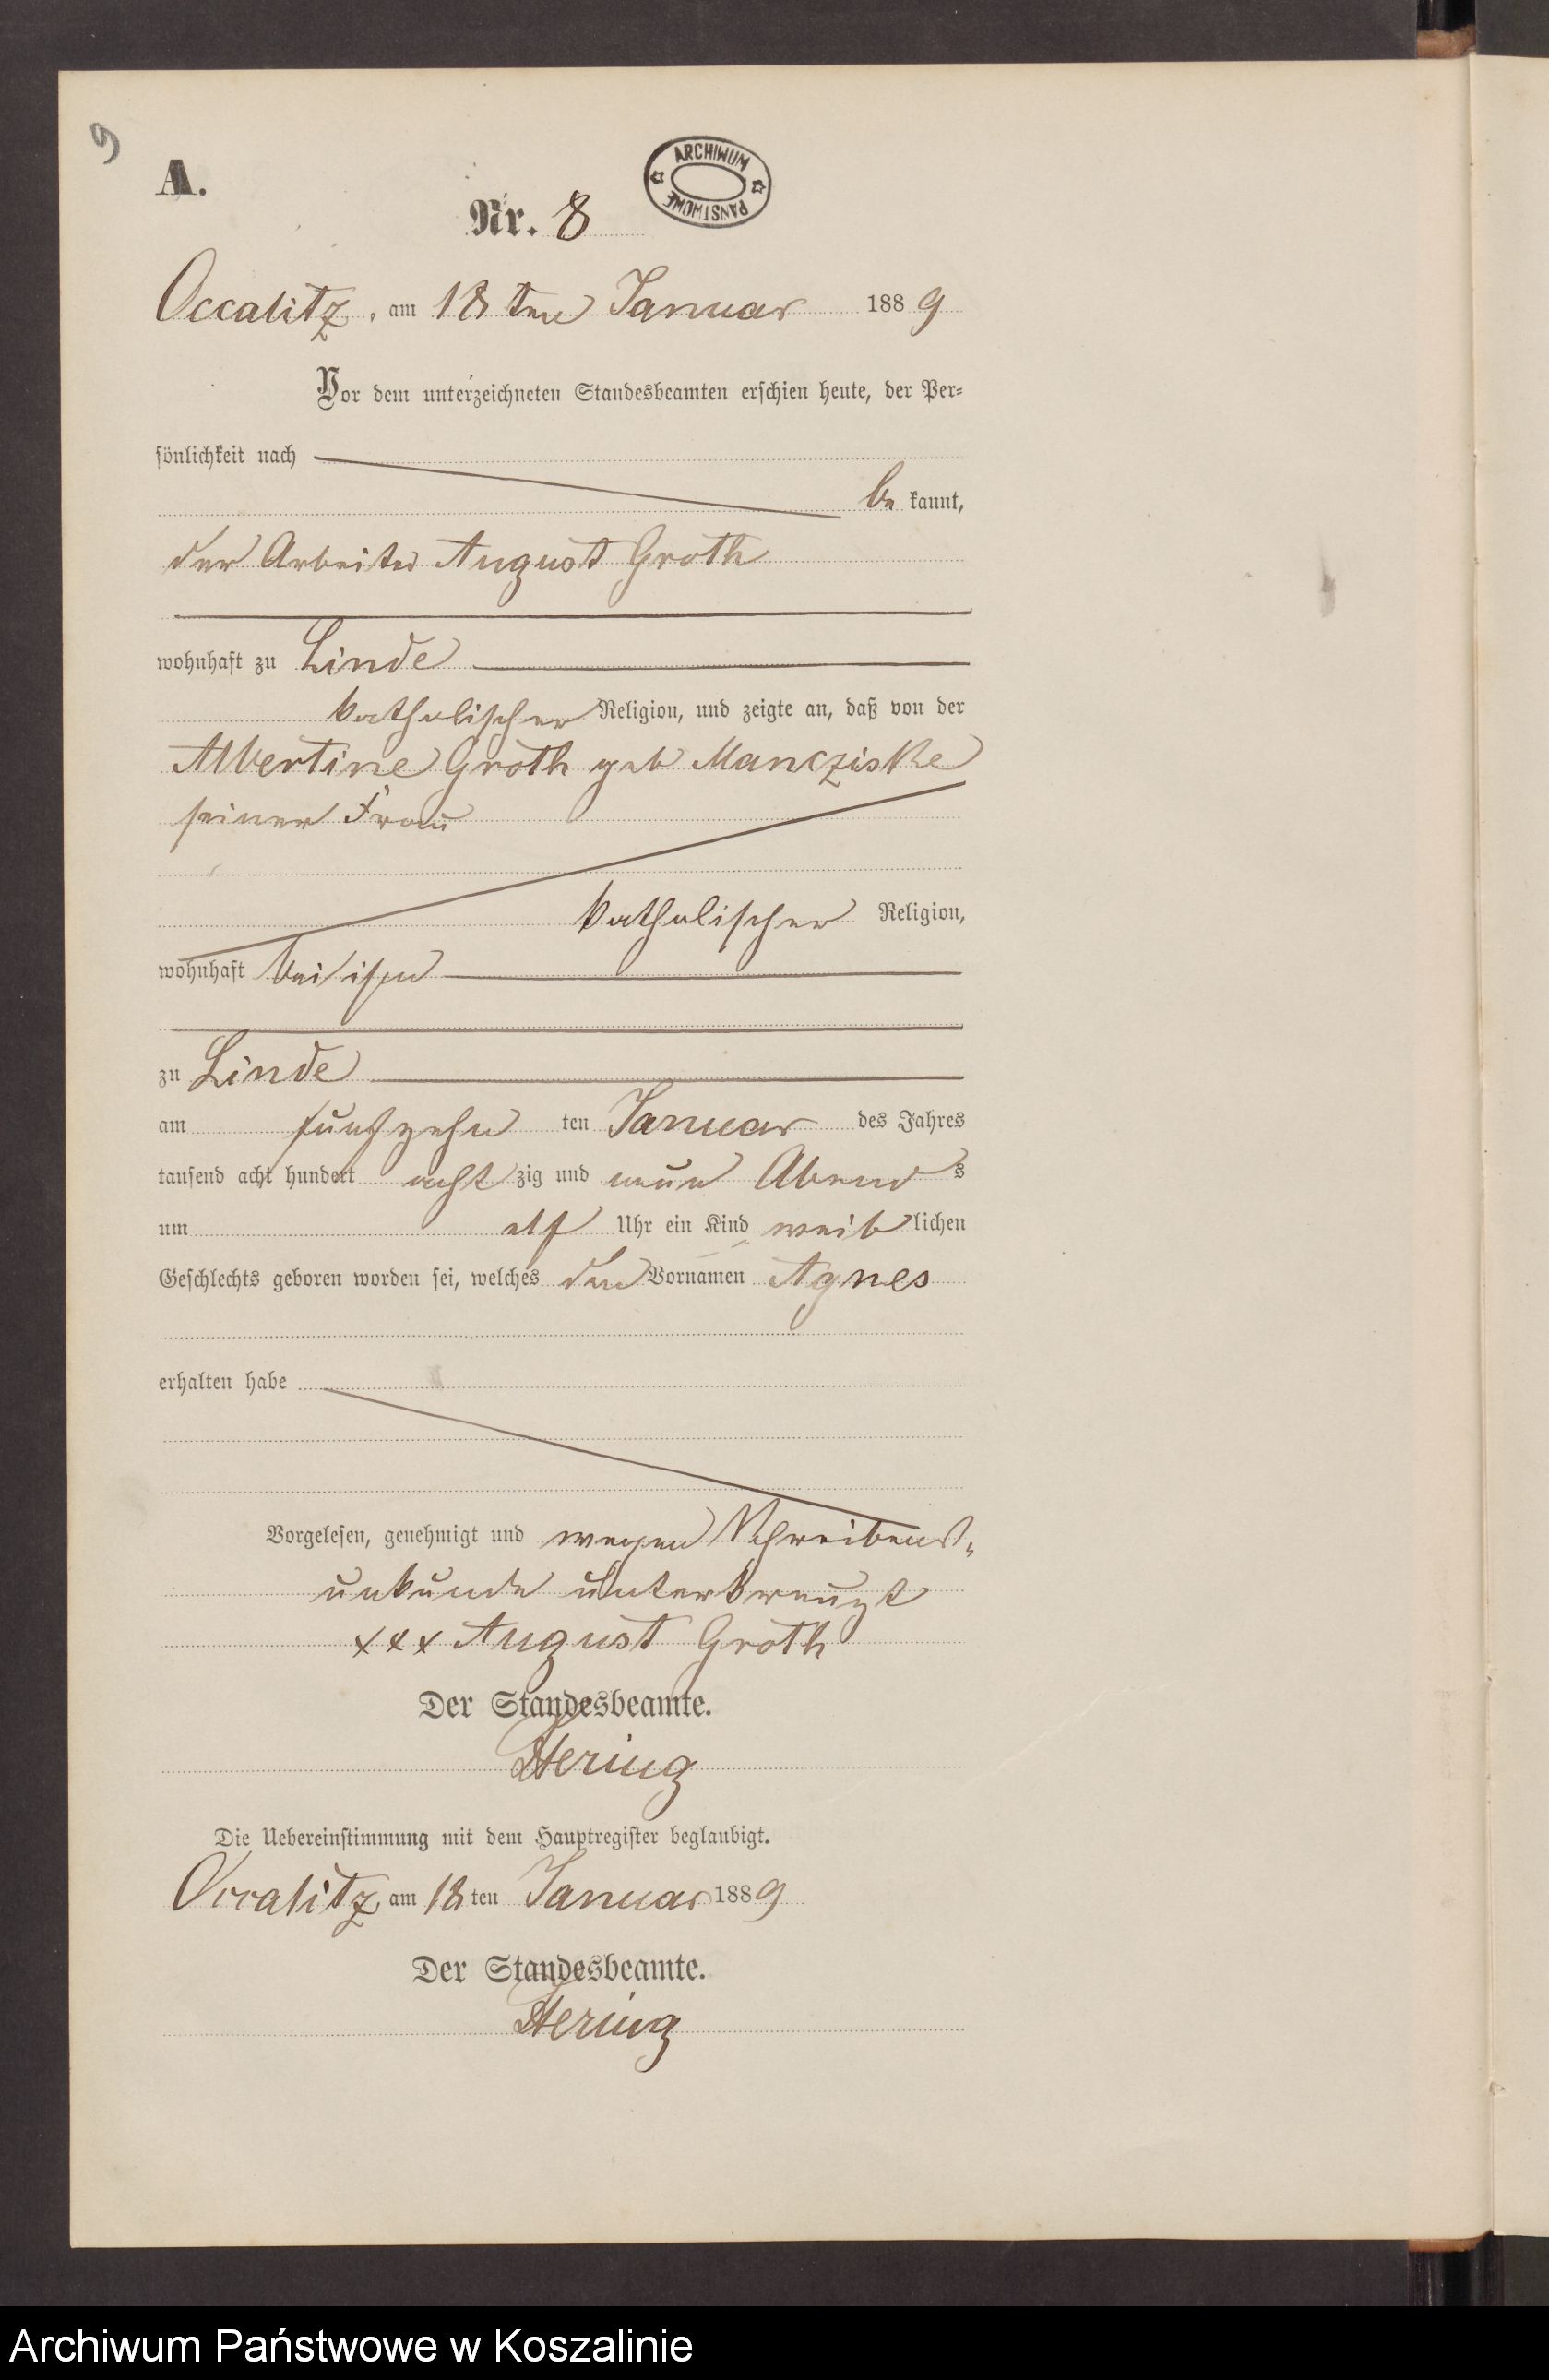 9
A.
ARCHIWUM
PAŃSTWOWE
Nr. 8
Occalitz, am 18ten Januar 1889
Vor dem unterzeichneten Standesbeamten erschien heute, der Per-
sönlichkeit nach
be kannt,
der Arbeiter August Groth
wohnhaft zu Linde
katholischer Religion, und zeigte an, daß von der
Albertine Groth geb Mancziske
seiner Frau
katholischer Religion,
wohnhaft bei ihm
zu Linde
am fünfzehn ten Januar des Jahres
tausend acht hundert acht zig und neun Abend s
um elf Uhr ein Kind weib lichen
Geschlechts geboren worden sei, welches den Vornamen Agnes
erhalten habe
Vorgelesen, genehmigt und wegen Schreibens-
unkunde unterkreuzt
xxx August Groth
Der Standesbeamte.
Hering
Die Uebereinstimmung mit dem Hauptregister beglaubigt.
Occalitz am 18 ten Januar 1889
Der Standesbeamte.
Hering
Archiwum Państwowe w Koszalinie